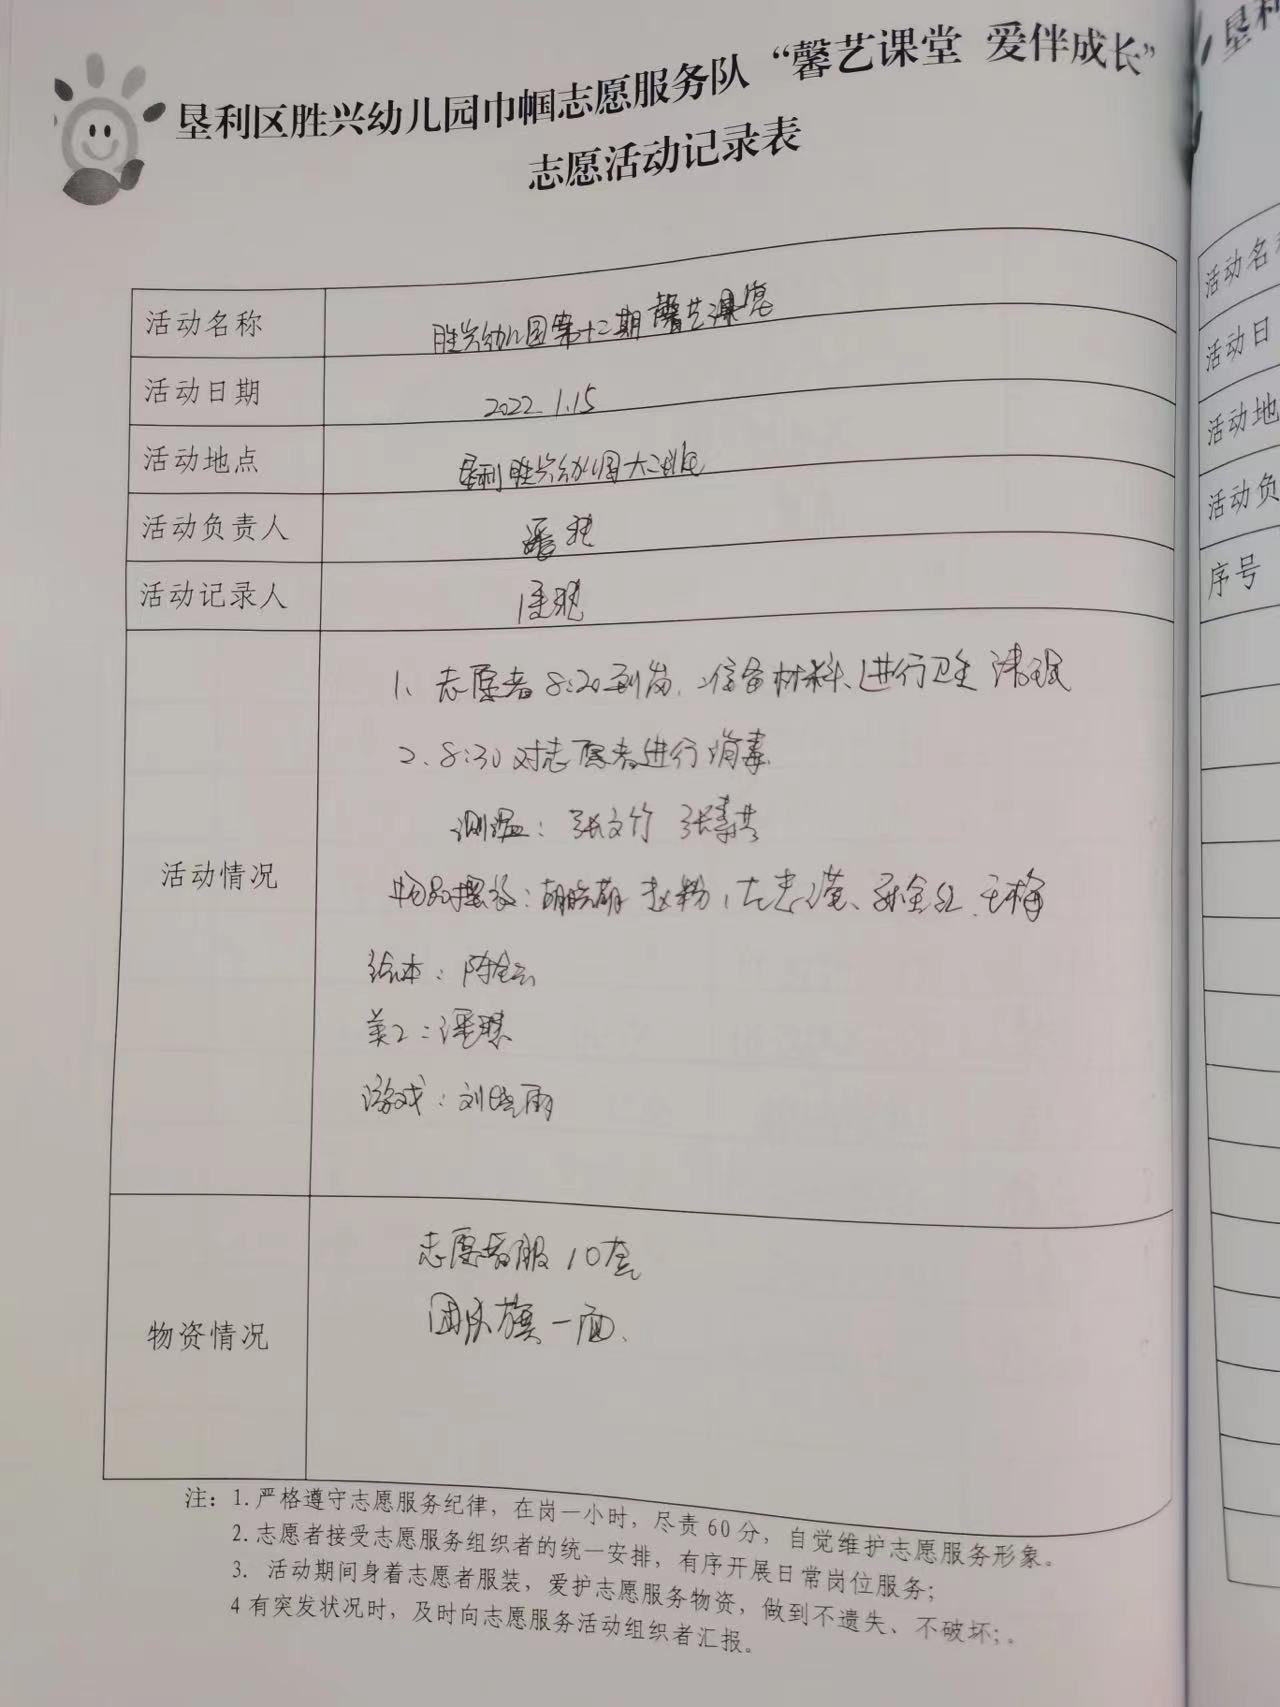 垦利区胜兴幼儿园巾帼志愿服务队“馨艺课堂 爱伴成长”
志愿活动记录表
活动名称 胜兴幼儿园第十二期馨艺课堂
活动日期 2022.1.15
活动地点 垦利胜兴幼儿园大二班
活动负责人
活动记录人
活动情况
1、志愿者8:20到岗、准备材料、进行卫生清理
2、8:30对志愿者进行消毒
测温：张文竹
物品摆放：
绘本：陈
美工：
游戏：刘晓雨
物资情况
志愿者服10套
团队旗一面、
注：1.严格遵守志愿服务纪律，在岗一小时，尽责60分，自觉维护志愿服务形象。
2.志愿者接受志愿服务组织者的统一安排，有序开展日常岗位服务；
3. 活动期间身着志愿者服装，爱护志愿服务物资，做到不遗失、不破坏；。
4 有突发状况时，及时向志愿服务活动组织者汇报。
垦利
活动名
活动日
活动地
活动负
序号